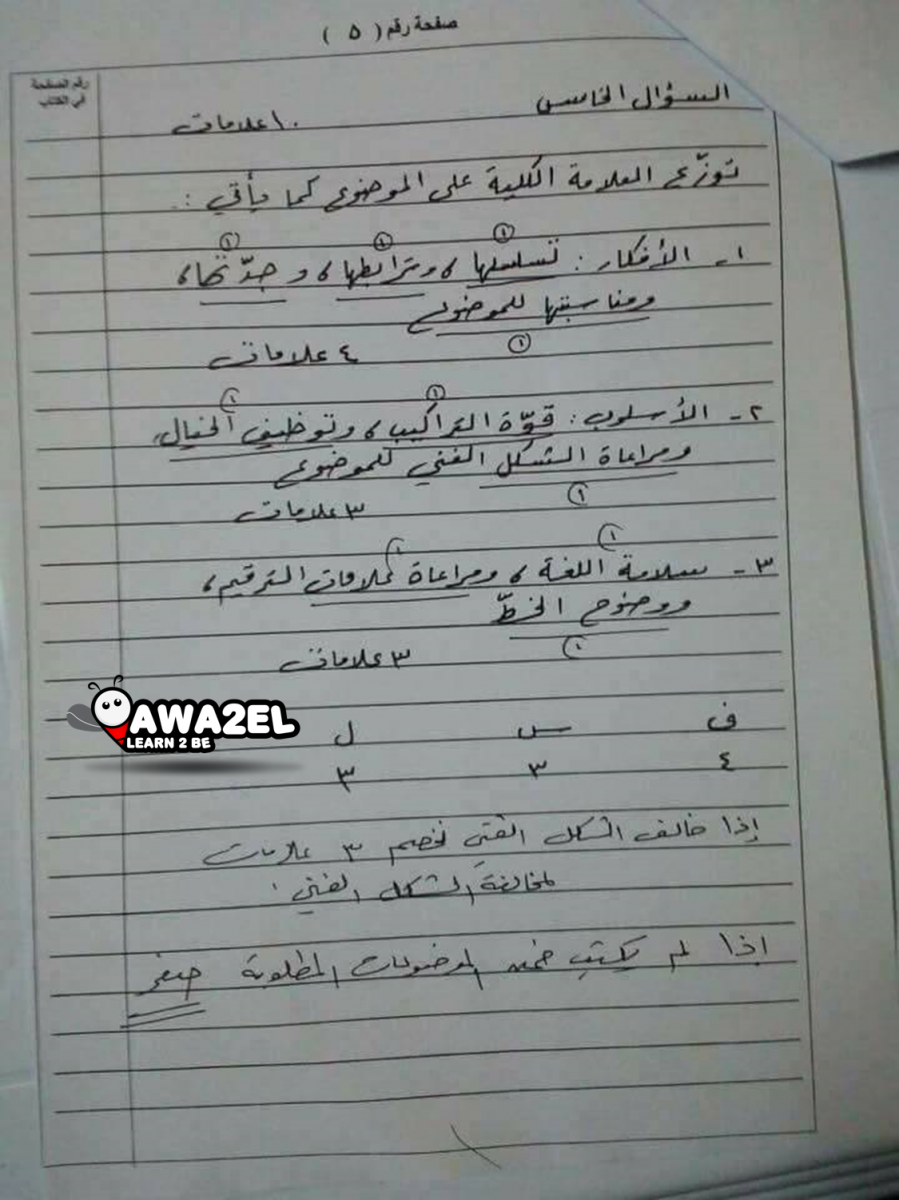 صفحة رقم ( ٥ )
رقم الصفحة
في الكتاب
السؤال الخامس
١٠ علامات
توزّع العلامة الكلية على الموضوع كما يأتي :
١ ١ ١
١- الأفكار : تسلسلها ، وترابطها ، وجدّتها ،
ومناسبتها للموضوع
١
٤ علامات
١ ١
٢- الأسلوب : قوّة التراكيب ، وتوظيف الخيال ،
ومراعاة الشكل الفني للموضوع
١
٣ علامات
١ ١
٣- سلامة اللغة ، ومراعاة علامات الترقيم ،
ووضوح الخطّ
١
٣ علامات
AWA2EL
LEARN 2 BE
ف س ل
٤ ٣ ٣
إذا خالف الشكل الفني تخصم ٣ علامات
لمخالفة الشكل الفني .
إذا لم يكتب ضمن الموضوعات المطلوبة صفر